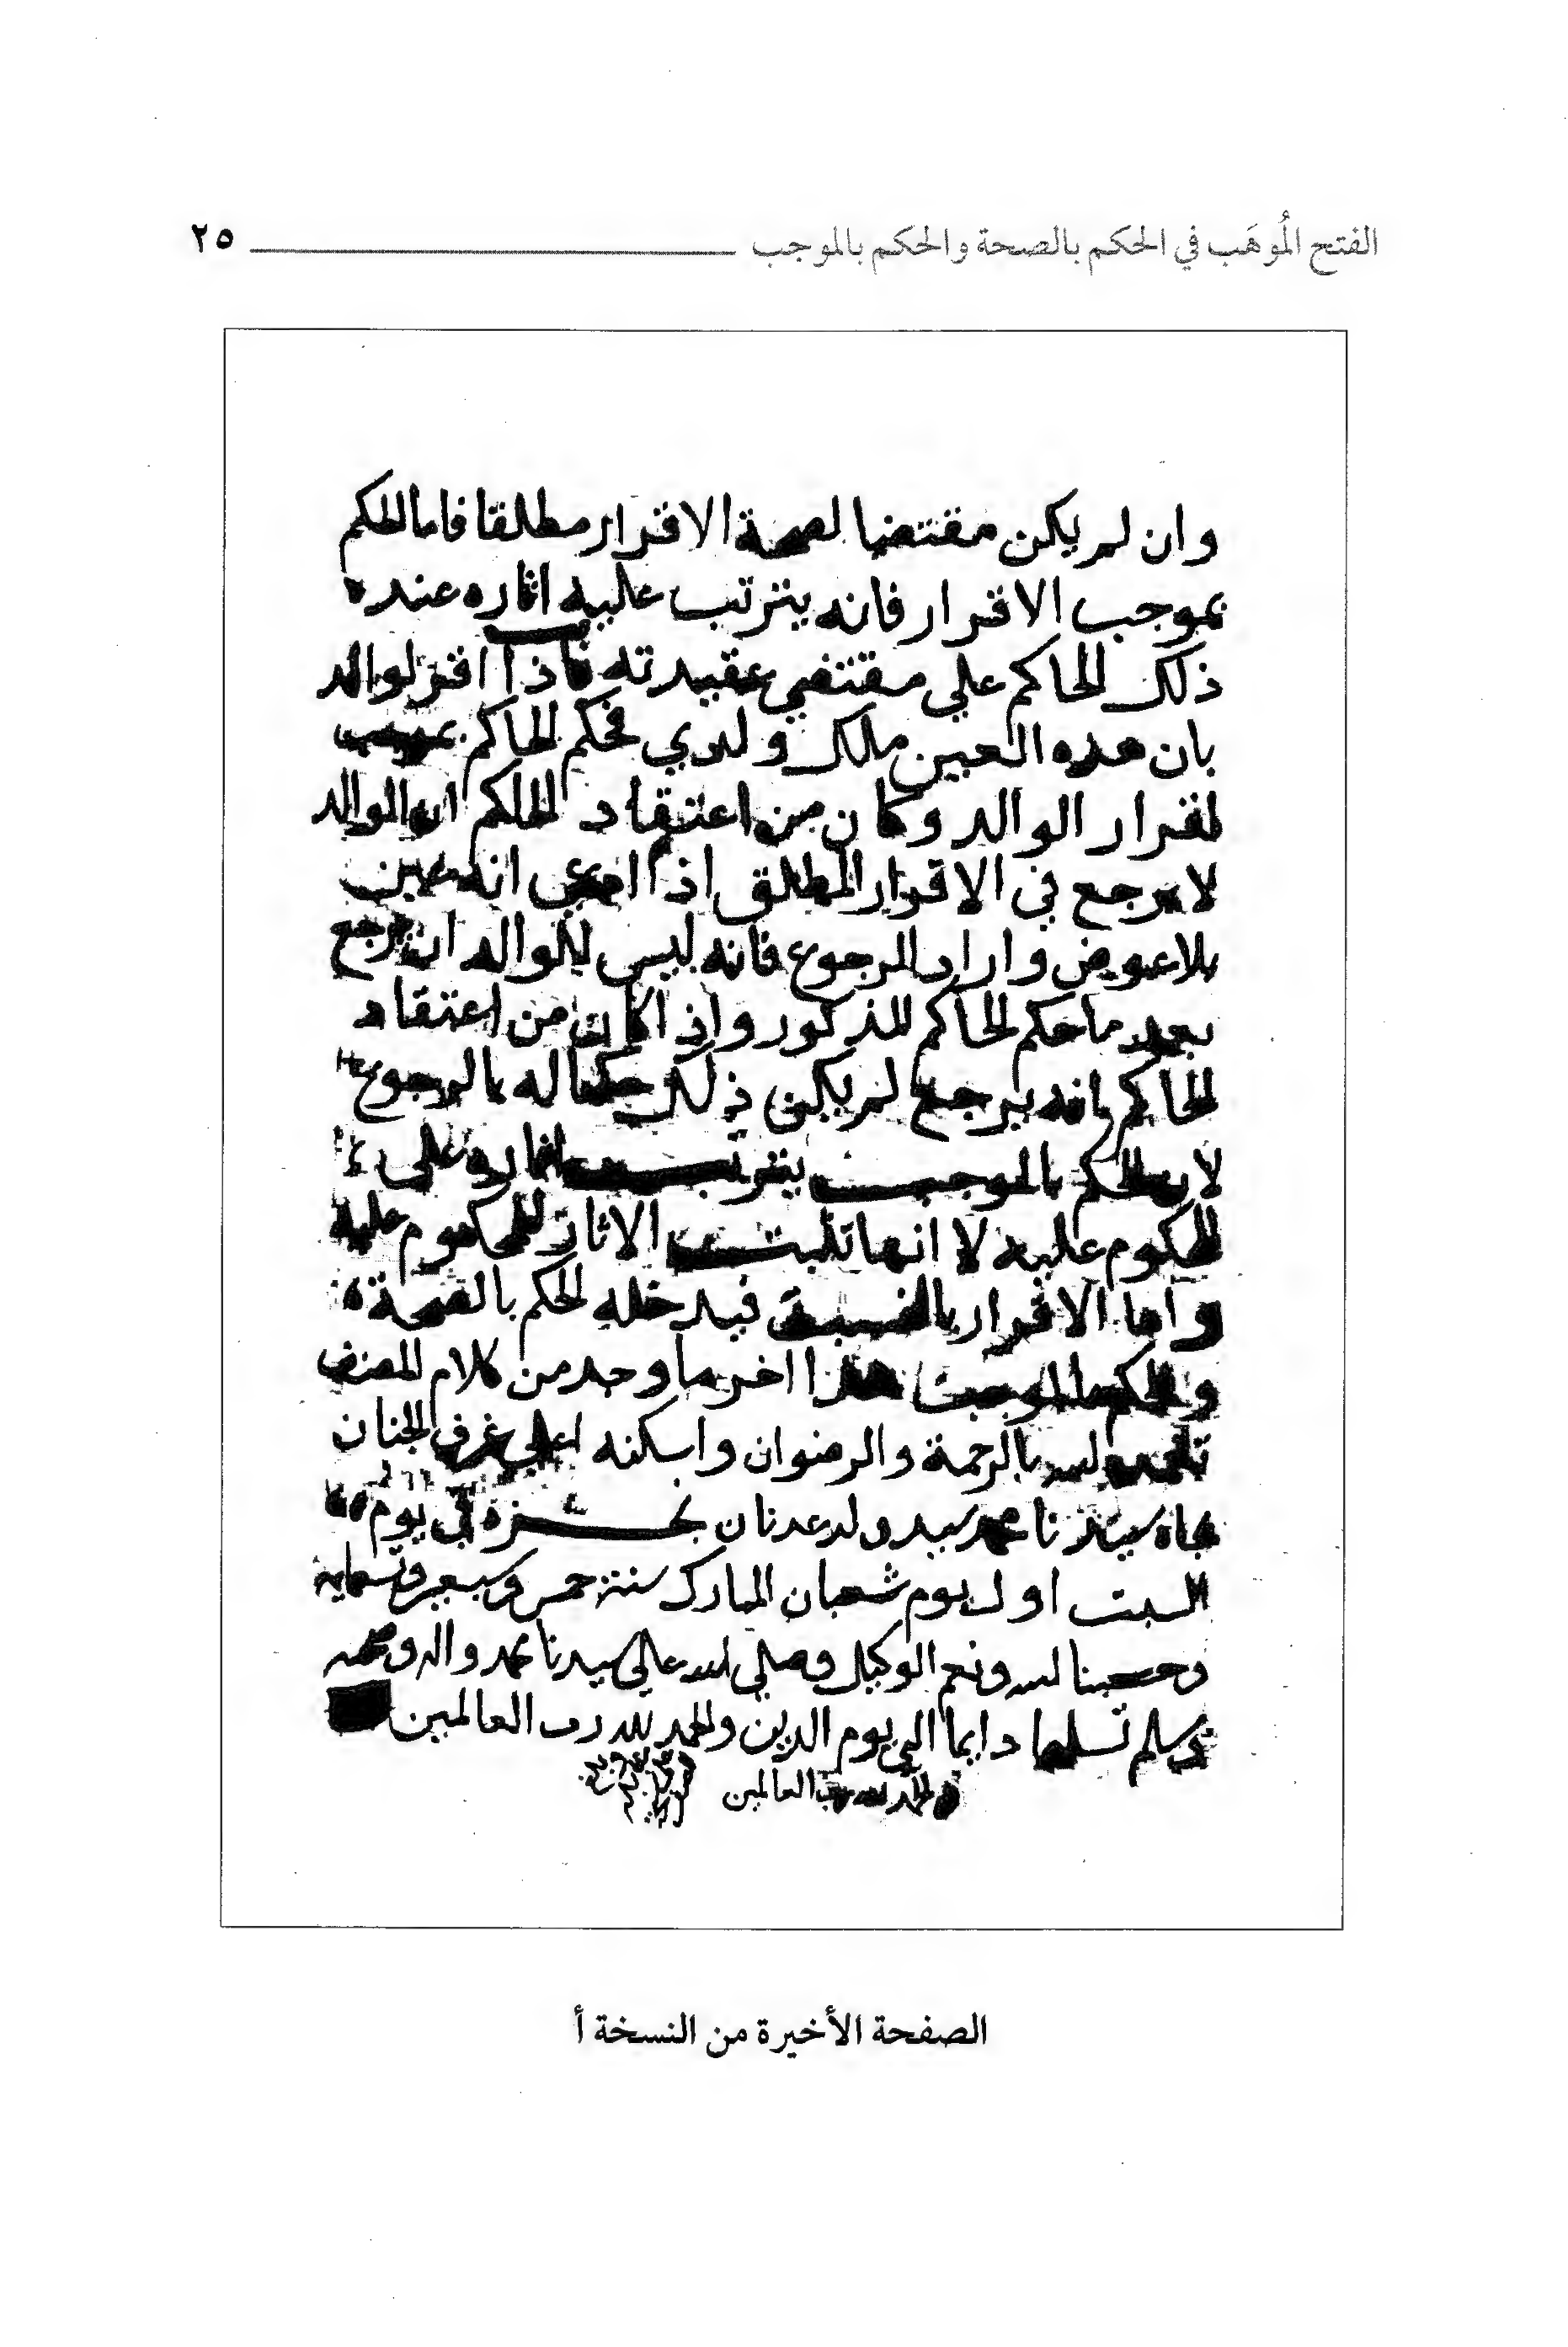 الفتح المُوهَب في الحكم بالصحة والحكم بالموجب ٢٥
وان لم يكن مقتضيا لصحة الاقرار مطلقا فاما الحكم
بموجب الاقرار فانه يترتب عليه اثاره عنده
ذلك الحاكم علي مقتضي عقيدته فاذا اقر لوالد
بان هذه العين ملك ولدي فحكم الحاكم بموجب
اقرار الوالد وكان من اعتقاد الحاكم ان الوالد
لا يرجع في الاقرار المطلق اذا ادعي انه عين
بلا عوض واراد الرجوع فانه ليس للوالد ان يرجع
بعد ما حكم الحاكم المذكور واذا كان من اعتقاد
الحاكم بانه يرجع لم يكن ذلك حكما له بالرجوع
لان الحكم بالموجب يترتب اثاره علي
المحكوم عليه لا انها تثبت الاثار للمحكوم عليه
واما الاقرار بالنسبة فيدخله الحكم بالصحة
والحكم بالموجب هذا اخر ما وجد من كلام المصنف
تغمده الله بالرحمة والرضوان واسكنه اعلي غرف الجنان
بجاه سيدنا محمد سيد ولد عدنان بحـ في يوم
السبت اول يوم شعبان المبارك سنة خمس وسبعين وتسماية
وحسبنا الله ونعم الوكيل وصلي الله علي سيدنا محمد واله وصحبه
وسلم تسليما دايما الي يوم الدين والحمد لله رب العالمين
والحمد لله رب العالمين
الصفحة الأخيرة من النسخة أ